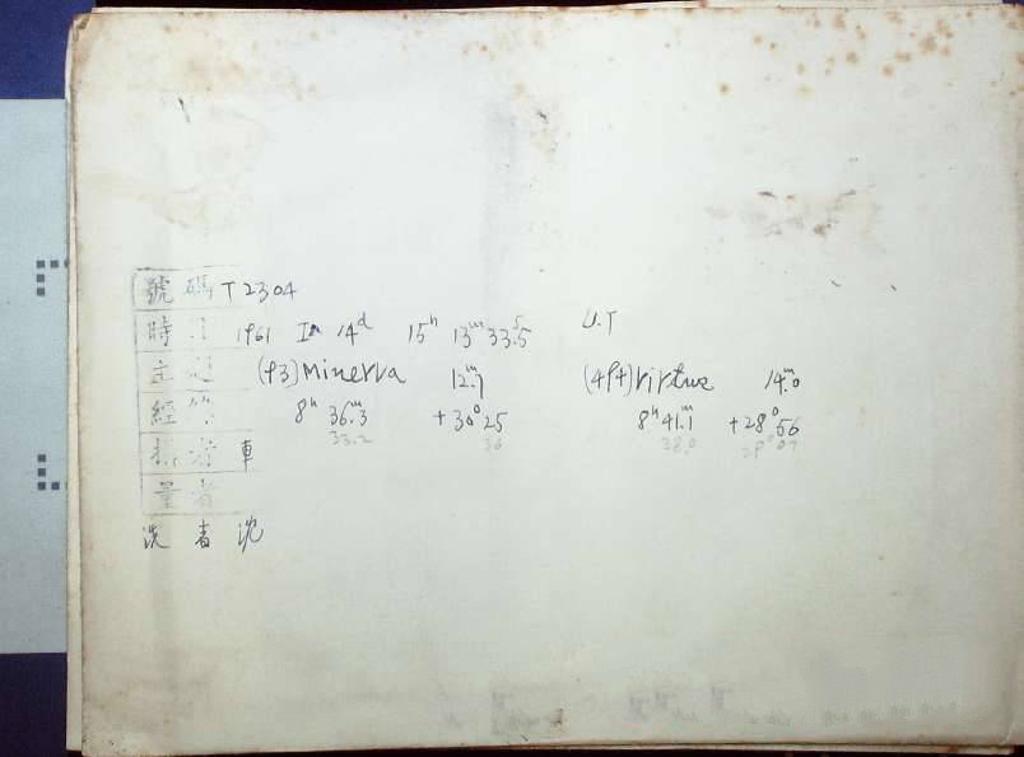 號碼 T2304
時 1961 Jn 14ᵈ 15ʰ 13ᵐ 33ˢ.5 U.T
主 (93) Minerva 12ᵐ.7 (494) Virtus 14ᵐ.0
經緯 8ʰ 36ᵐ.3 +30°25 8ʰ 41ᵐ.1 +28°56
33.2 36 38.0 29°07
攝者 車
量者
洗者 沈